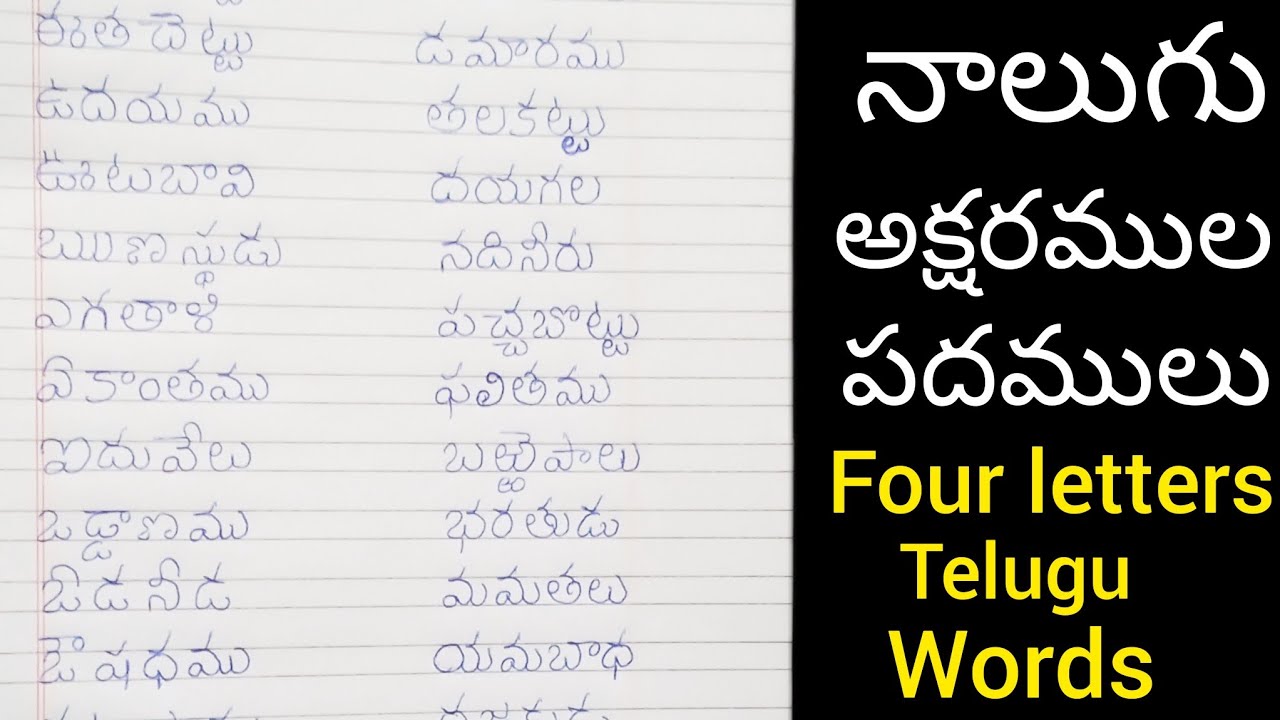 ఈతచెట్టు డమారము
ఉదయము తలకట్టు
ఊటబావి దయగల
ఋణస్థుడు నదినీరు
ఎగతాళి పచ్చబొట్టు
ఏకాంతము ఫలితము
ఐదువేలు బఱ్ఱెపాలు
ఒడ్డాణము భరతుడు
ఓడనీడ మమతలు
ఔషధము యమబాధ
నాలుగు
అక్షరముల
పదములు
Four letters
Telugu
Words